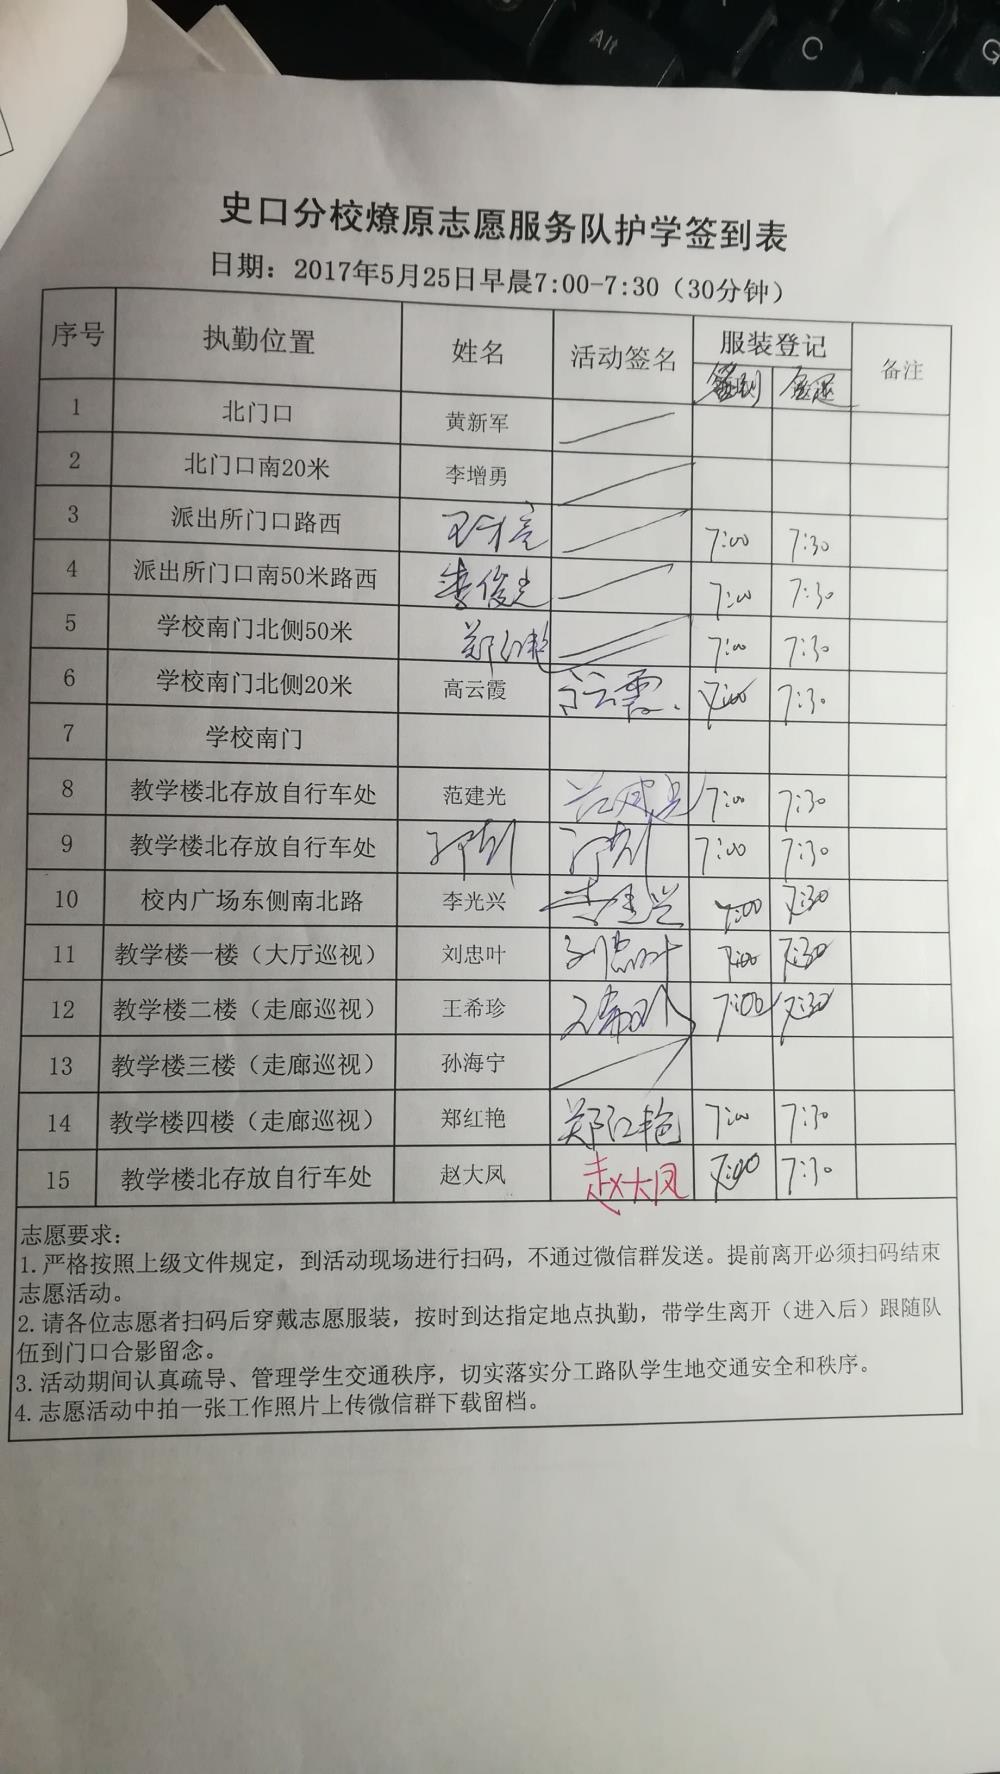 Alt
C
史口分校燎原志愿服务队护学签到表
日期：2017年5月25日早晨7:00-7:30（30分钟）
序号 执勤位置 姓名 活动签名 服装登记 备注
1 北门口 黄新军
2 北门口南20米 李增勇
3 派出所门口路西 7:00 7:30
4 派出所门口南50米路西 李俊光 7:00 7:30
5 学校南门北侧50米 郑红艳 7:00 7:30
6 学校南门北侧20米 高云霞 高云霞 7:00 7:30
7 学校南门
8 教学楼北存放自行车处 范建光 范建光 7:00 7:30
9 教学楼北存放自行车处 7:00 7:30
10 校内广场东侧南北路 李光兴 李光兴 7:00 7:30
11 教学楼一楼（大厅巡视） 刘忠叶 刘忠叶 7:00 7:30
12 教学楼二楼（走廊巡视） 王希珍 王希珍 7:00 7:30
13 教学楼三楼（走廊巡视） 孙海宁
14 教学楼四楼（走廊巡视） 郑红艳 郑红艳 7:00 7:30
15 教学楼北存放自行车处 赵大凤 赵大凤 7:00 7:30
志愿要求：
1.严格按照上级文件规定，到活动现场进行扫码，不通过微信群发送。提前离开必须扫码结束
志愿活动。
2.请各位志愿者扫码后穿戴志愿服装，按时到达指定地点执勤，带学生离开（进入后）跟随队
伍到门口合影留念。
3.活动期间认真疏导、管理学生交通秩序，切实落实分工路队学生地交通安全和秩序。
4.志愿活动中拍一张工作照片上传微信群下载留档。